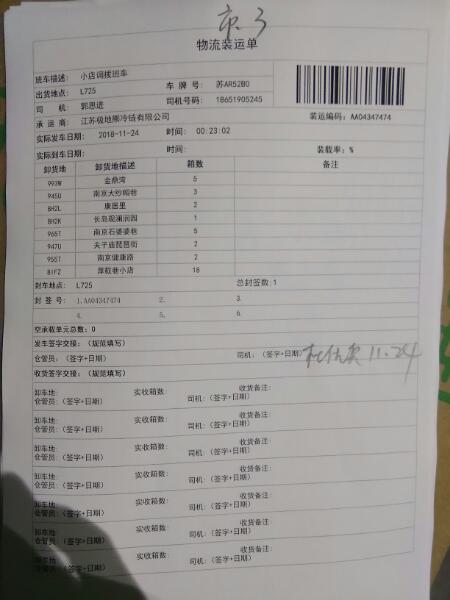 京3
物流装运单
班车描述: 小店调拨班车
出货地点: L725 车 牌 号: 苏AR52B0
司 机: 郭思进 司机号码: 18651905245
承 运 商: 江苏极地熊冷链有限公司 装运编码: AA04347474
实际发车日期: 2018-11-24 时间: 00:23:02
实际到车日期: 时间: 装载率: %
卸货地 卸货地描述 箱数 备注
993W 金鼎湾 5
945U 南京大纱帽巷 3
8H2L 康居里 2
8H2K 长岛观澜润园 1
965T 南京石婆婆巷 5
947U 夫子庙琵琶街 2
955T 南京健康路 2
81FZ 厚载巷小店 18
封车地点: L725 总封签数:1
封 签 号: 1.AA04347474 2. 3.
4. 5. 6.
空承载单元总数: 0
发车签字交接: (规范填写)
仓管员: (签字+日期) 司机: (签字+日期) 11.24
收货签字交接: (规范填写)
卸车地: 实收箱数: 收货备注:
仓管员: (签字+日期) 司机: (签字+日期)
卸车地: 实收箱数: 收货备注:
仓管员: (签字+日期) 司机: (签字+日期)
卸车地: 实收箱数: 收货备注:
仓管员: (签字+日期) 司机: (签字+日期)
卸车地: 实收箱数: 收货备注:
仓管员: (签字+日期) 司机: (签字+日期)
卸车地: 实收箱数: 收货备注:
仓管员: (签字+日期) 司机: (签字+日期)
卸车地: 实收箱数: 收货备注:
仓管员: (签字+日期) 司机: (签字+日期)